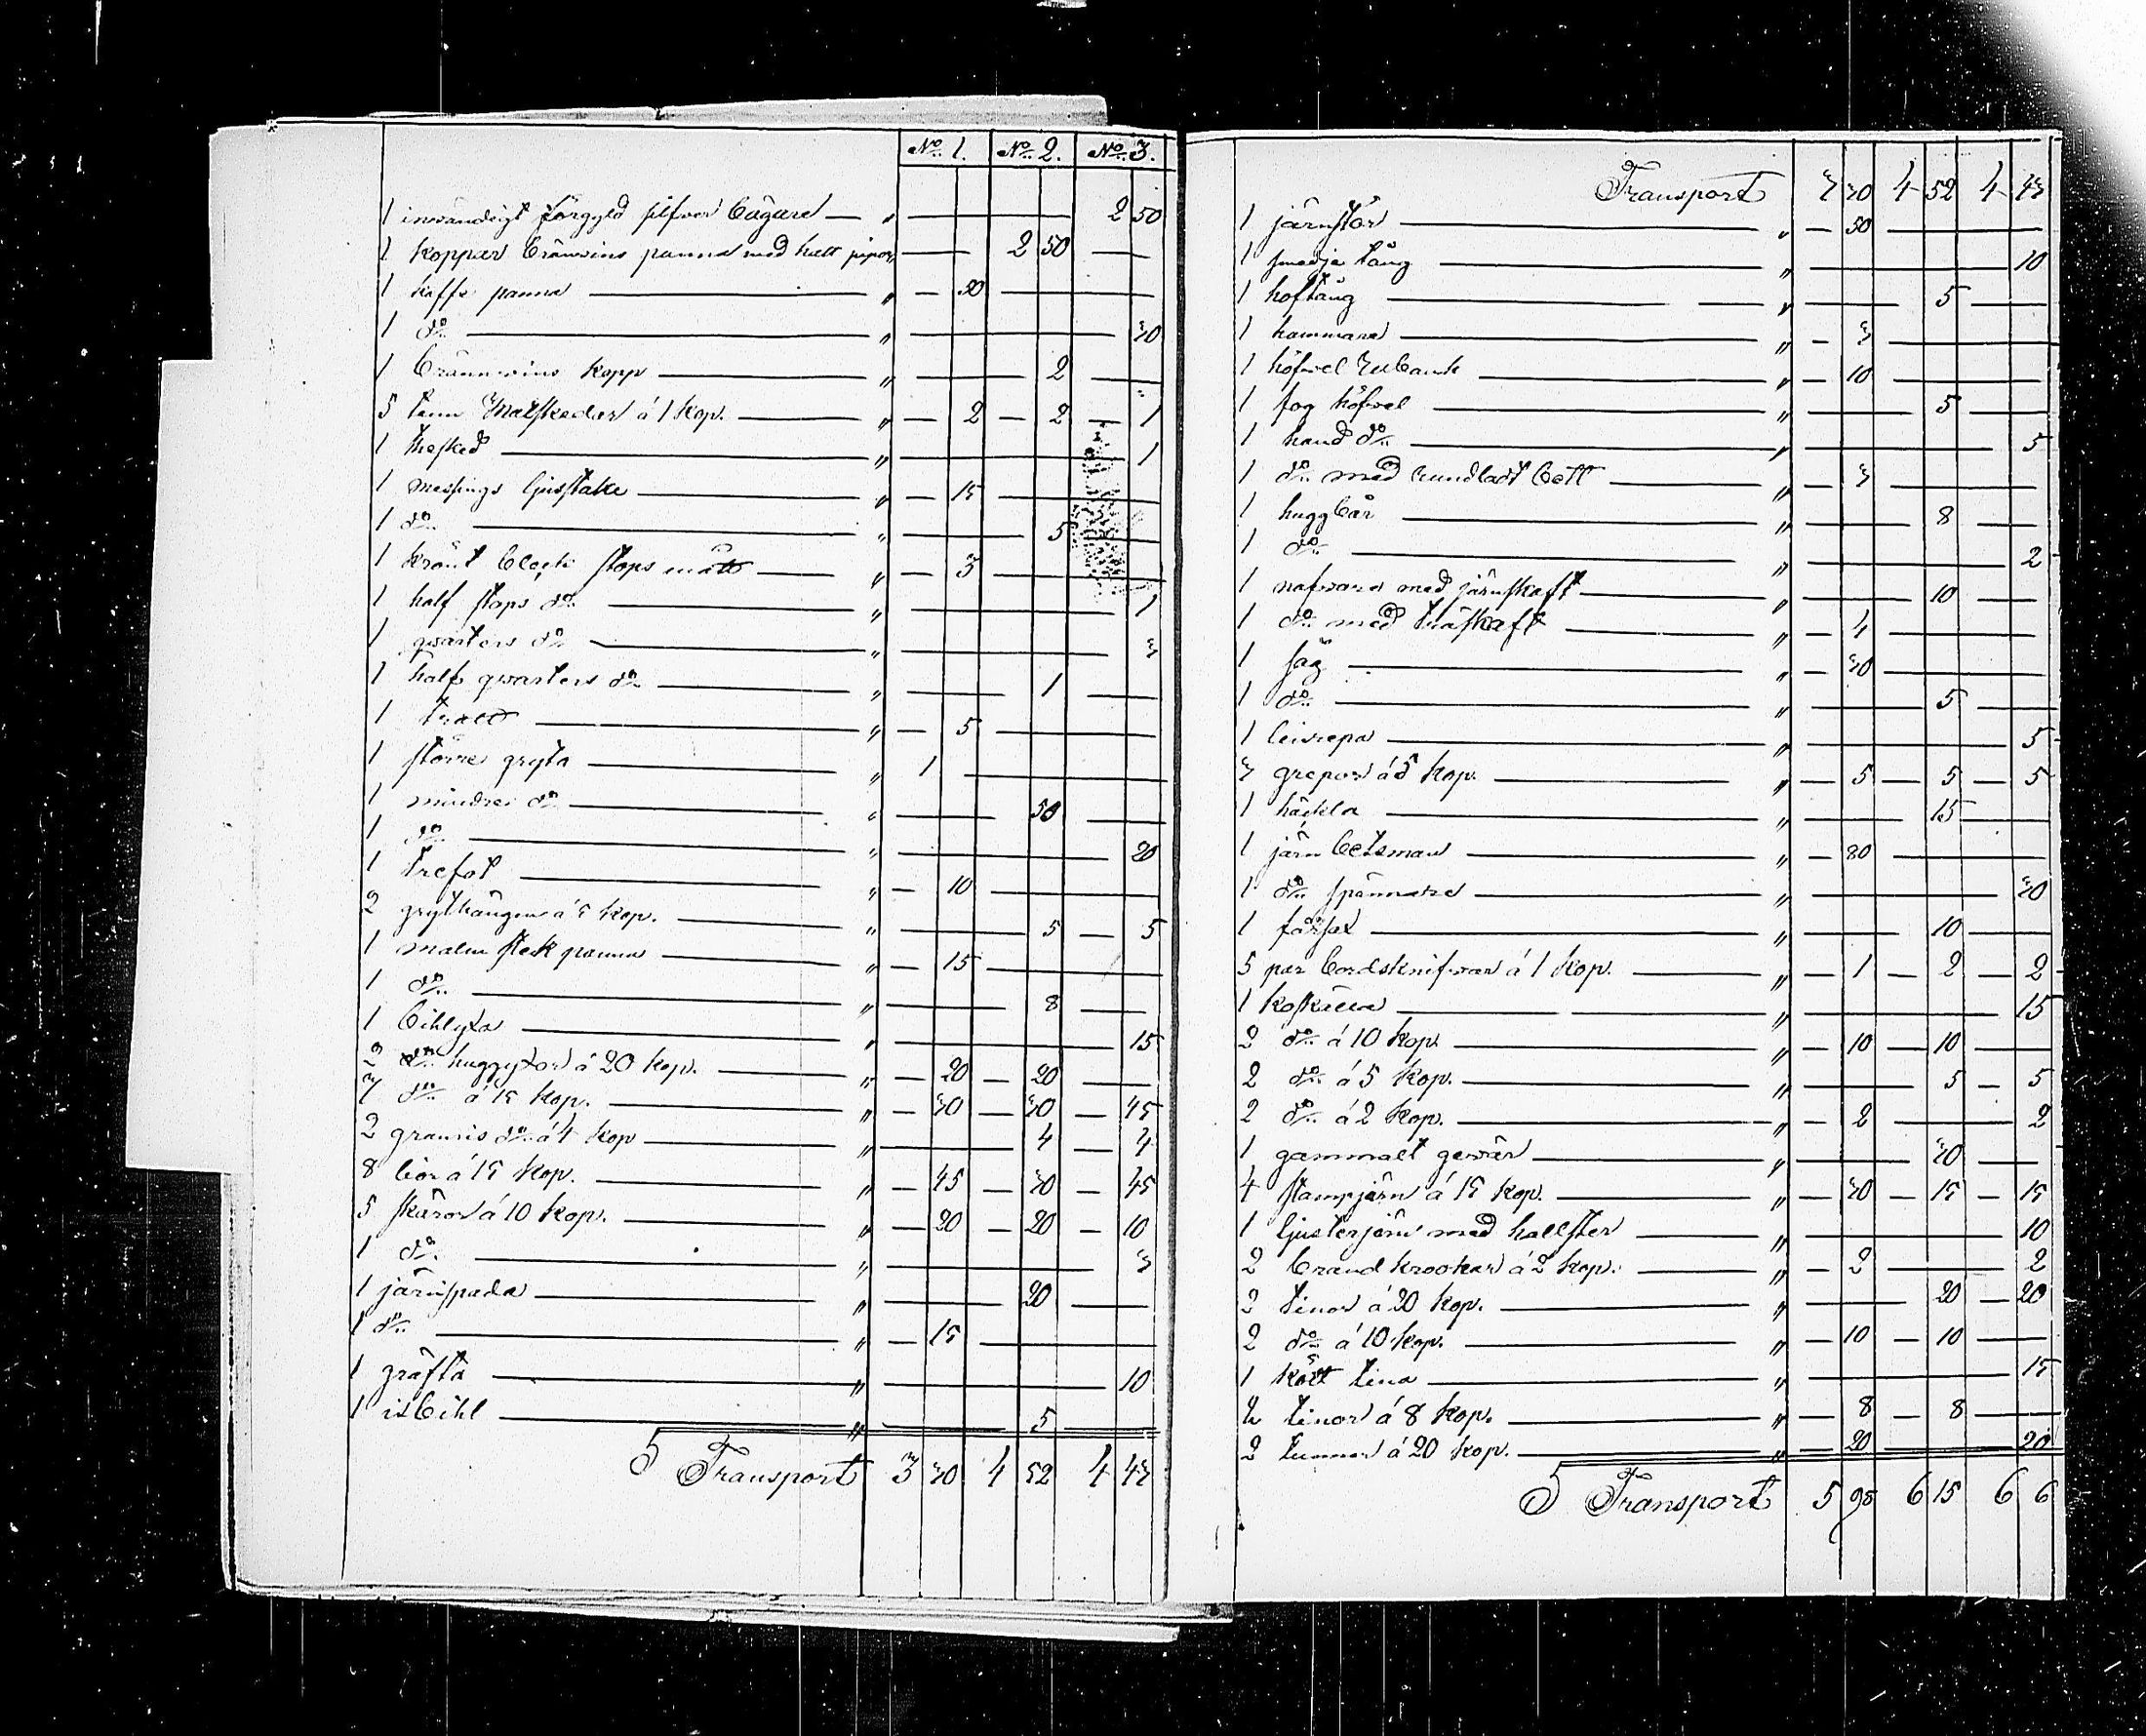 No 1. No 2. No 3.
1 inwändigt förgyld silfver bägare — " 2 50
1 koppar bränwins panna med hatt pipor " 2 50
1 kaffe panna " 50
1 do " 30
1 bränwins kopp " 2
5 tenn Matskedar á 1 kop. " 2 2 1
1 thesked " 1
1 messings ljusstake " 15
1 do " 5
1 krönt bleck stops mått " 3
1 half stops do " 1
1 qwarters do " 3
1 half qwarters do " 1
1 tratt " 5
1 större gryta " 1
1 mindre do " 50
1 do " 20
1 trefot " 10
2 grythängen á 5 kop. " 5 5
1 malm stek panna " 15
1 do " 8
1 bihlyxa " 15
2 do huggyxor á 20 kop. " 20 20
7 do á 15 kop. " 30 30 45
2 gramis do á 4 kop " 4 4
8 liar á 15 kop. " 45 30 45
5 skäror á 10 kop. " 20 20 10
1 do " 3
1 järnspada " 20
1 do " 15
1 gräfta " 10
1 isbihl " 5
Transport 3 30 4 52 4 43
Transport 3 30 4 52 4 43
1 järnstör " 50
1 smedje tång " 10
1 hoftång " 5
1 hammare " 3
1 höfvel rubank " 10
1 fog höfvel " 5
1 hand do " 5
1 do med rundladt bett " 3
1 huggbår " 8
1 do " 2
1 nafvare med järnskaft " 10
1 do med träskaft " 4
1 såg " 30
1 do " 5
1 linrepa " 5
3 grepor á 5 kop. " 5 5 5
1 häckla " 15
1 järn betsman " 80
1 do spännare " 30
1 fårsax " 10
5 par bordsknifvar á 1 kop. " 1 2 2
1 koskälla " 15
2 do á 10 kop. " 10 10
2 do á 5 kop. " 5 5
2 do á 2 kop. " 2 2
1 gammalt gevär " 30
4 stampjärn á 15 kop. " 30 15 15
1 ljusterjärn med hallster " 10
2 brand krookar á 2 kop. " 2 2
2 tinor á 20 kop. " 20 20
2 do á 10 kop. " 10 10
1 kött tina " 15
2 tinor á 8 kop. " 8 8
2 tunnor á 20 kop. " 20 20
Transport 5 98 6 15 6 6